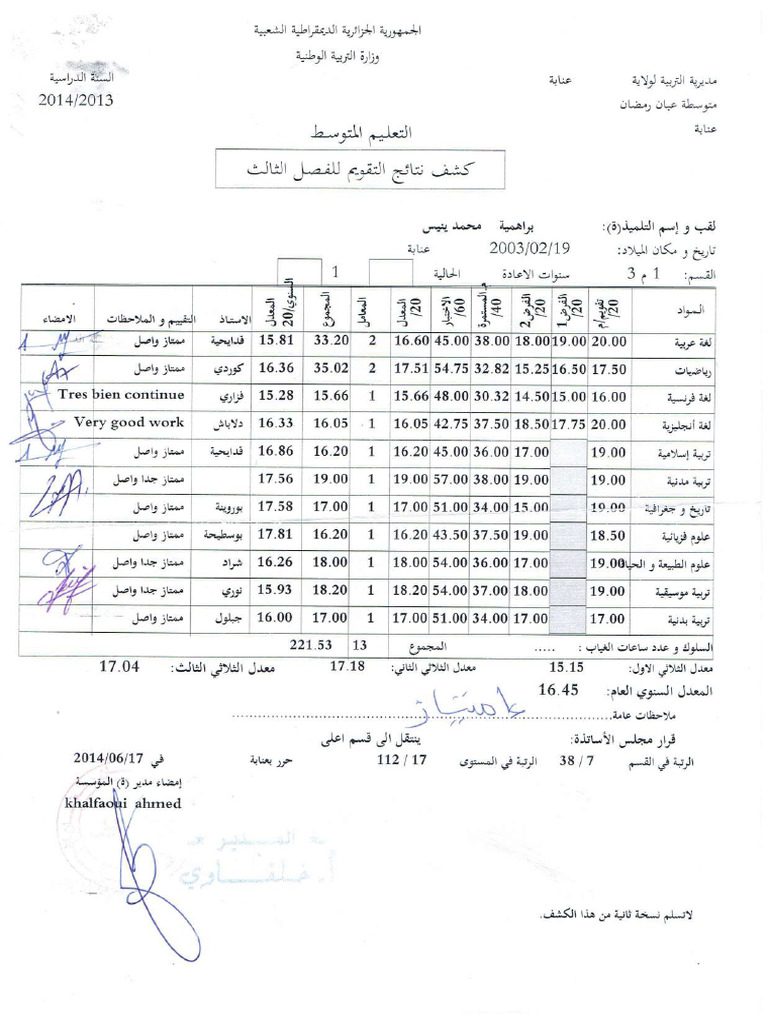 الجمهورية الجزائرية الديمقراطية الشعبية
وزارة التربية الوطنية
مديرية التربية لولاية عنابة
السنة الدراسية
متوسطة عبان رمضان
2014/2013
عنابة
التعليم المتوسط
كشف نتائج التقويم للفصل الثالث
لقب و إسم التلميذ(ة): براهمية محمد ينيس
تاريخ و مكان الميلاد: 2003/02/19 عنابة
القسم: 1 م 3 سنوات الاعادة الحالية 1
المـواد تقويم/م /20 الفرض1 /20 الفرض2 /20 م.المستمرة /40 الاختبار /60 المعدل /20 المعامل المجموع المعدل السنوي/20 الاستاذ التقييم و الملاحظات الامضاء
لغة عربية 20.00 19.00 18.00 38.00 45.00 16.60 2 33.20 15.81 قدايحية ممتاز واصل
رياضيات 17.50 16.50 15.25 32.82 54.75 17.51 2 35.02 16.36 كوردي ممتاز واصل
لغة فرنسية 16.00 15.00 14.50 30.32 48.00 15.66 1 15.66 15.28 فزاري Tres bien continue
لغة أنجليزية 20.00 17.75 18.50 37.50 42.75 16.05 1 16.05 16.33 دلاباش Very good work
تربية إسلامية 19.00 17.00 36.00 45.00 16.20 1 16.20 16.86 قدايحية ممتاز واصل
تربية مدنية 19.00 19.00 38.00 57.00 19.00 1 19.00 17.56 ممتاز جدا واصل
تاريخ و جغرافية 19.00 15.00 34.00 51.00 17.00 1 17.00 17.58 بوروينة ممتاز واصل
علوم فزيائية 18.50 19.00 37.50 43.50 16.20 1 16.20 17.81 بوسطيحة ممتاز واصل
علوم الطبيعة و الحياة 19.00 17.00 36.00 54.00 18.00 1 18.00 16.26 شراد ممتاز جدا واصل
تربية موسيقية 19.00 18.00 37.00 54.00 18.20 1 18.20 15.93 نوري ممتاز جدا واصل
تربية بدنية 17.00 17.00 34.00 51.00 17.00 1 17.00 16.00 جبلول ممتاز واصل
السلوك و عدد ساعات الغياب : ..... المجموع 13 221.53
معدل الثلاثي الاول: 15.15 معدل الثلاثي الثاني: 17.18 معدل الثلاثي الثالث: 17.04
المعدل السنوي العام: 16.45
ملاحظات عامة. امتياز
قرار مجلس الأساتذة: ينتقل الى قسم اعلى
الرتبة في القسم 7 / 38 الرتبة في المستوى 17 / 112 حرر بعنابة في 2014/06/17
إمضاء مدير (ة) المؤسسة
khalfaoui ahmed
المدير
أ. خلفاوي
لاتسلم نسخة ثانية من هذا الكشف.